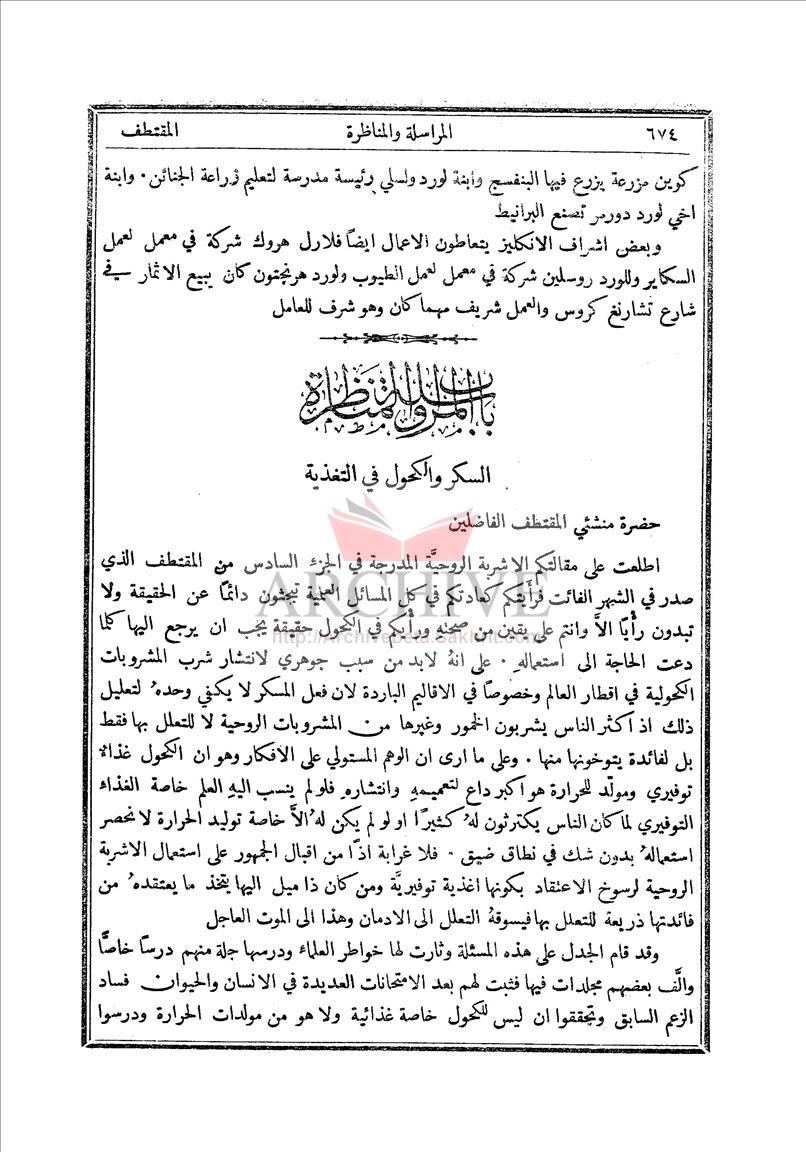 ٦٧٤ المراسلة والمناظرة المقتطف
كوين مزرعة يزرع فيها البنفسج وابنة لورد ولسلي رئيسة مدرسة لتعليم زراعة الجنائن . وابنة
اخي لورد دورمر تصنع البرانيط
وبعض اشراف الانكليز يتعاطون الاعمال ايضاً فلارل هروك شركة في معمل لعمل
السكاير وللورد روسلين شركة في معمل لعمل الطيوب ولورد هرنجتون كان يبيع الاثمار في
شارع تشارنغ كروس والعمل شريف مهما كان وهو شرف للعامل
باب المراسلة والمناظرة
السكر والكحول في التغذية
حضرة منشئي المقتطف الفاضلين
اطلعت على مقالتكم الاشربة الروحيَّة المدرجة في الجزء السادس من المقتطف الذي
صدر في الشهر الفائت فرأيتكم كعادتكم في كل المسائل العلمية تبحثون دائماً عن الحقيقة ولا
تبدون رأياً الاَّ وانتم على يقين من صحته ورأيكم في الكحول حقيقة يجب ان يرجع اليها كلما
دعت الحاجة الى استعماله . على انهُ لابد من سبب جوهري لانتشار شرب المشروبات
الكحولية في اقطار العالم وخصوصاً في الاقاليم الباردة لان فعل المسكر لا يكفي وحدهُ لتعليل
ذلك اذ اكثر الناس يشربون الخمور وغيرها من المشروبات الروحية لا للتعلل بها فقط
بل لفائدة يتوخونها منها . وعلى ما ارى ان الوهم المستولي على الافكار وهو ان الكحول غذاء
توفيري ومولّد للحرارة هو اكبر داع لتعميمهِ وانتشاره فلو لم ينسب اليهِ العلم خاصة الغذاء
التوفيري لما كان الناس يكترثون لهُ كثيراً او لو لم يكن لهُ الاَّ خاصة توليد الحرارة لانحصر
استعمالهُ بدون شك في نطاق ضيق . فلا غرابة اذاً من اقبال الجمهور على استعمال الاشربة
الروحية لرسوخ الاعتقاد بكونها اغذية توفيريَّة ومن كان ذا ميل اليها يتخذ ما يعتقدهُ من
فائدتها ذريعة للتعلل بها فيسوقهُ التعلل الى الادمان وهذا الى الموت العاجل
وقد قام الجدل على هذه المسئلة وثارت لها خواطر العلماء ودرسها جلة منهم درساً خاصًّا
والَّف بعضهم مجلدات فيها فثبت لهم بعد الامتحانات العديدة في الانسان والحيوان فساد
الزعم السابق وتحققوا ان ليس للكحول خاصة غذائية ولا هو من مولدات الحرارة ودرسوا
ARCHIVE
http://Archivebeta.Sakhrit.com